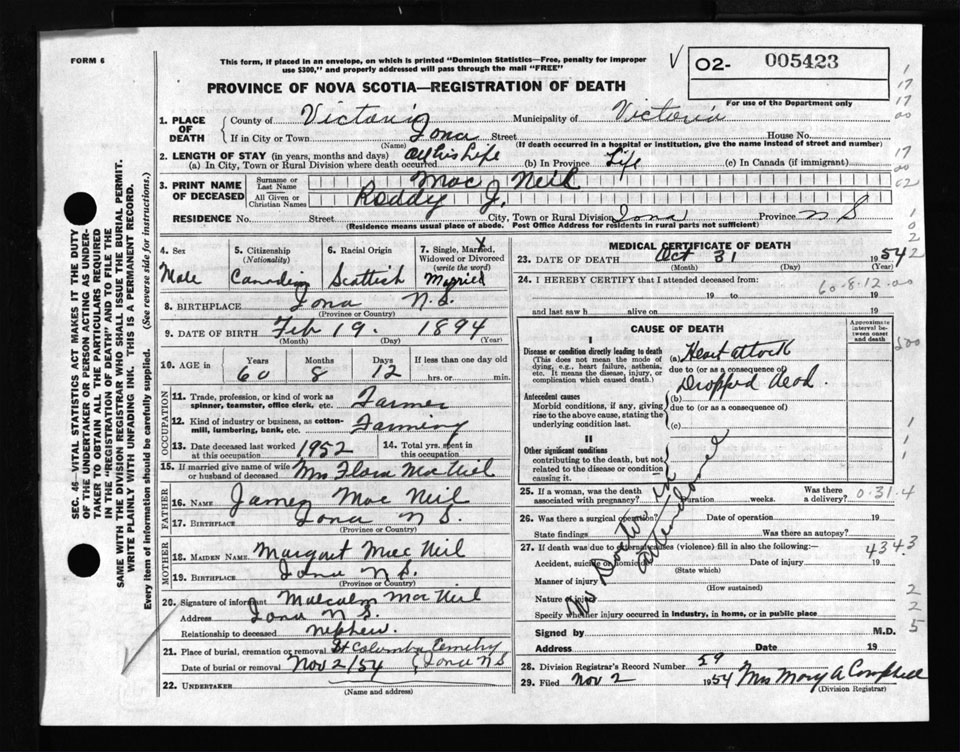 FORM 6
This form, if placed in an envelope, on which is printed "Dominion Statistics—Free, penalty for improper
use $300," and properly addressed will pass through the mail "FREE"
PROVINCE OF NOVA SCOTIA—REGISTRATION OF DEATH
O2- 005423
For use of the Department only
1. PLACE OF DEATH
County of Victoria Municipality of Victoria
If in City or Town Iona Street House No.
(Name) (If death occurred in a hospital or institution, give the name instead of street and number)
2. LENGTH OF STAY (in years, months and days)
(a) In City, Town or Rural Division where death occurred All his Life (b) In Province Life (c) In Canada (if immigrant)
3. PRINT NAME OF DECEASED
Surname or Last Name Mac Neil
All Given or Christian Names Roddy J.
RESIDENCE No. Street City, Town or Rural Division Iona Province N S
(Residence means usual place of abode. Post Office Address for residents in rural parts not sufficient)
4. Sex Male
5. Citizenship (Nationality) Canadian
6. Racial Origin Scottish
7. Single, Married, Widowed or Divorced (write the word) Married
8. BIRTHPLACE Iona N.S.
(Province or Country)
9. DATE OF BIRTH Feb 19. 1894
(Month) (Day) (Year)
10. AGE in Years Months Days If less than one day old
60 8 12 hrs. or min.
OCCUPATION
11. Trade, profession, or kind of work as spinner, teamster, office clerk, etc. Farmer
12. Kind of industry or business, as cotton-mill, lumbering, bank, etc. Farming
13. Date deceased last worked at this occupation 1952 14. Total yrs. spent in this occupation
15. If married give name of wife or husband of deceased Mrs Flora MacNeil
FATHER
16. NAME James Mac Neil
17. BIRTHPLACE Iona N S.
(Province or Country)
MOTHER
18. MAIDEN NAME Margaret Mac Neil
19. BIRTHPLACE Iona N S.
(Province or Country)
20. Signature of informant Malcolm MacNeil
Address Iona N S.
Relationship to deceased nephew.
21. Place of burial, cremation or removal St Columba Cemetry
Date of burial or removal Nov 2/54 Iona N S
22. UNDERTAKER
(Name and address)
MEDICAL CERTIFICATE OF DEATH
23. DATE OF DEATH Oct 31 1954
(Month) (Day) (Year)
24. I HEREBY CERTIFY that I attended deceased from:
60-8-12-00
19 to 19
and last saw h alive on 19
CAUSE OF DEATH
Approximate interval between onset and death
I
Disease or condition directly leading to death
(This does not mean the mode of dying, e.g., heart failure, asthenia, etc. It means the disease, injury, or complication which caused death.)
(a) Heart attack
due to (or as a consequence of)
Antecedent causes
Morbid conditions, if any, giving rise to the above cause, stating the underlying condition last.
(b) Dropped dead.
due to (or as a consequence of)
(c)
II
Other significant conditions
contributing to the death, but not related to the disease or condition causing it.
No Doctor in attendance
25. If a woman, was the death associated with pregnancy? Duration weeks. Was there a delivery?
0.31.4
26. Was there a surgical operation? Date of operation 19
State findings Was there an autopsy?
27. If death was due to external causes (violence) fill in also the following:—
4343
Accident, suicide or homicide Date of injury 19
(State which)
Manner of injury
(How sustained)
Nature of injury
Specify whether injury occurred in industry, in home, or in public place
Signed by M.D.
Address Date 19
28. Division Registrar's Record Number 59
29. Filed Nov 2 1954 Mrs Mary A Campbell
(Division Registrar)
SEC. 46—VITAL STATISTICS ACT MAKES IT THE DUTY
OF THE UNDERTAKER OR PERSON ACTING AS UNDER-
TAKER TO OBTAIN ALL THE PARTICULARS REQUIRED
IN THE "REGISTRATION OF DEATH" AND TO FILE THE
SAME WITH THE DIVISION REGISTRAR WHO SHALL ISSUE THE BURIAL PERMIT.
WRITE PLAINLY WITH UNFADING INK. THIS IS A PERMANENT RECORD.
Every item of information should be carefully supplied. (See reverse side for instructions.)
1
17
17
00
17
00
02
1
0
2
2
500
1
1
1
2
2
5